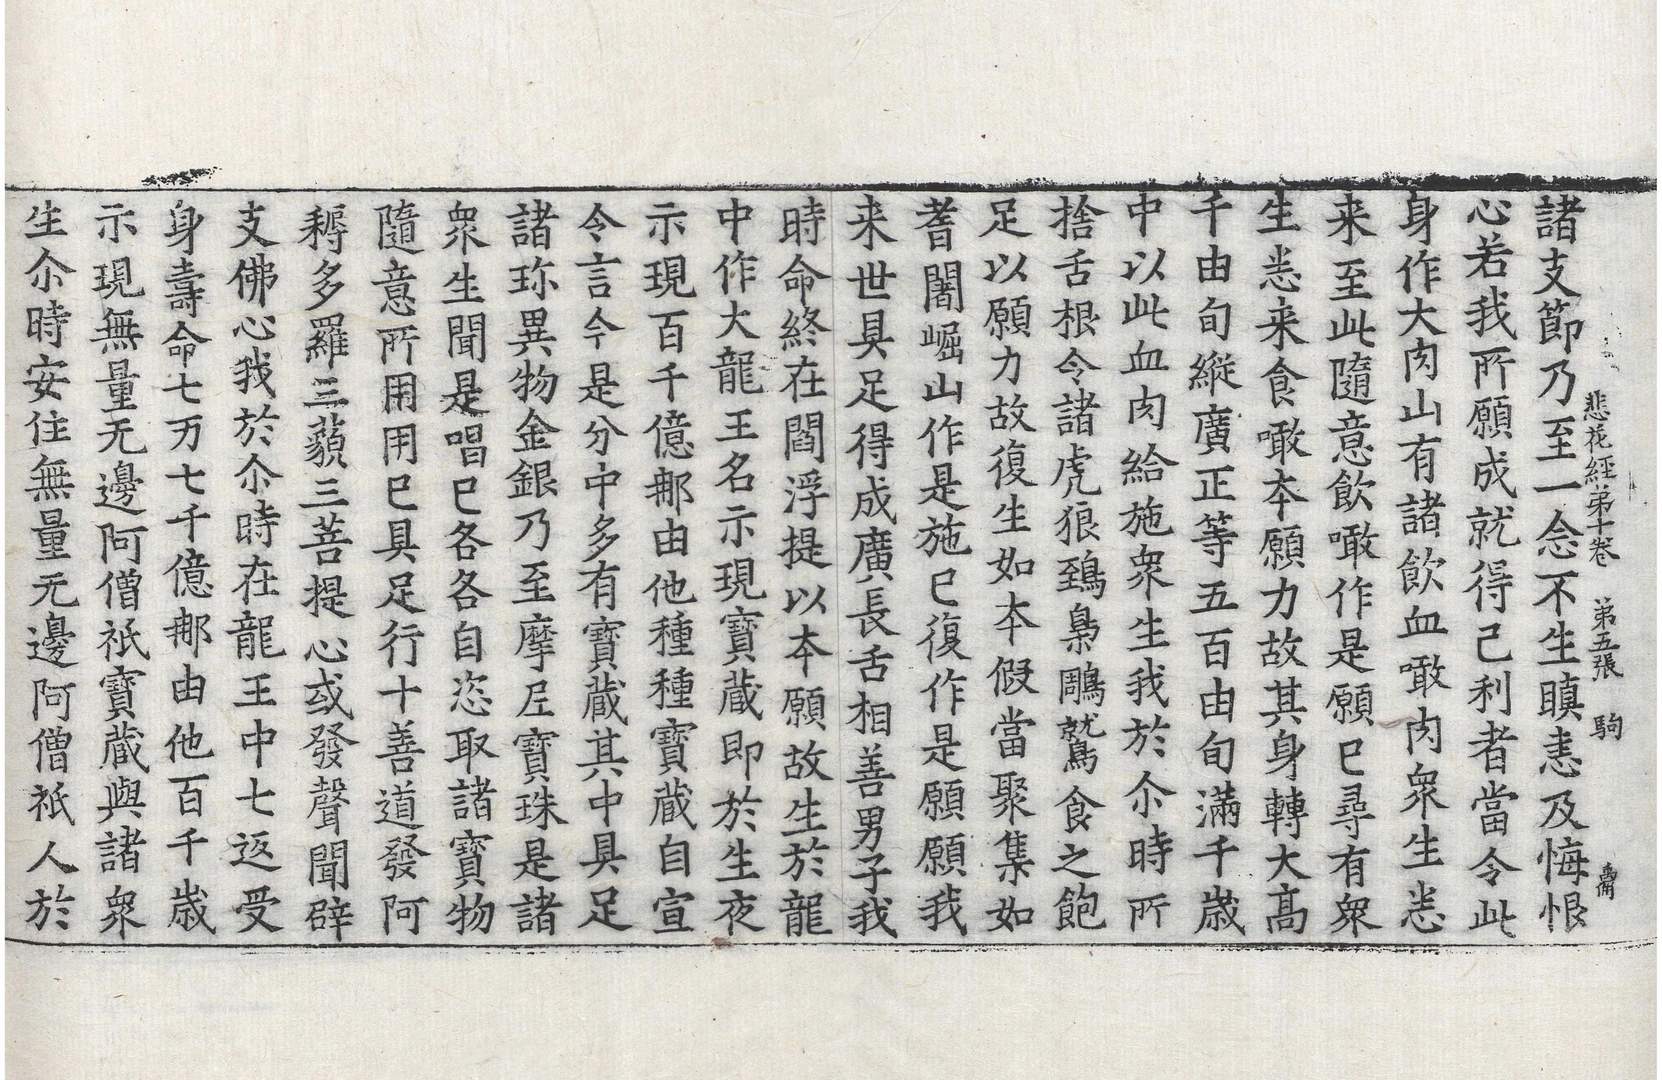 悲花經第十卷　第五張　駒
諸支節乃至一念不生瞋恚及悔恨
心若我所願成就得己利者當令此
身作大肉山有諸飲血噉肉衆生悉
来至此隨意飲噉作是願已尋有衆
生悉来食噉本願力故其身轉大高
千由旬縱廣正等五百由旬滿千歲
中以此血肉給施衆生我於尒時所
捨舌根令諸虎狼鵄梟鵰鷲食之飽
足以願力故復生如本假當聚集如
耆闍崛山作是施已復作是願願我
来世具足得成廣長舌相善男子我
時命終在閻浮提以本願故生於龍
中作大龍王名示現寶藏即於生夜
示現百千億那由他種種寶藏自宣
令言今是分中多有寶藏其中具足
諸珎異物金銀乃至摩尼寶珠是諸
衆生聞是唱已各各自恣取諸寶物
隨意所用用已具足行十善道發阿
耨多羅三藐三菩提心或發聲聞辟
支佛心我於尒時在龍王中七返受
身壽命七万七千億那由他百千歲
示現無量无邊阿僧祇寶藏與諸衆
生尒時安住無量无邊阿僧祇人於